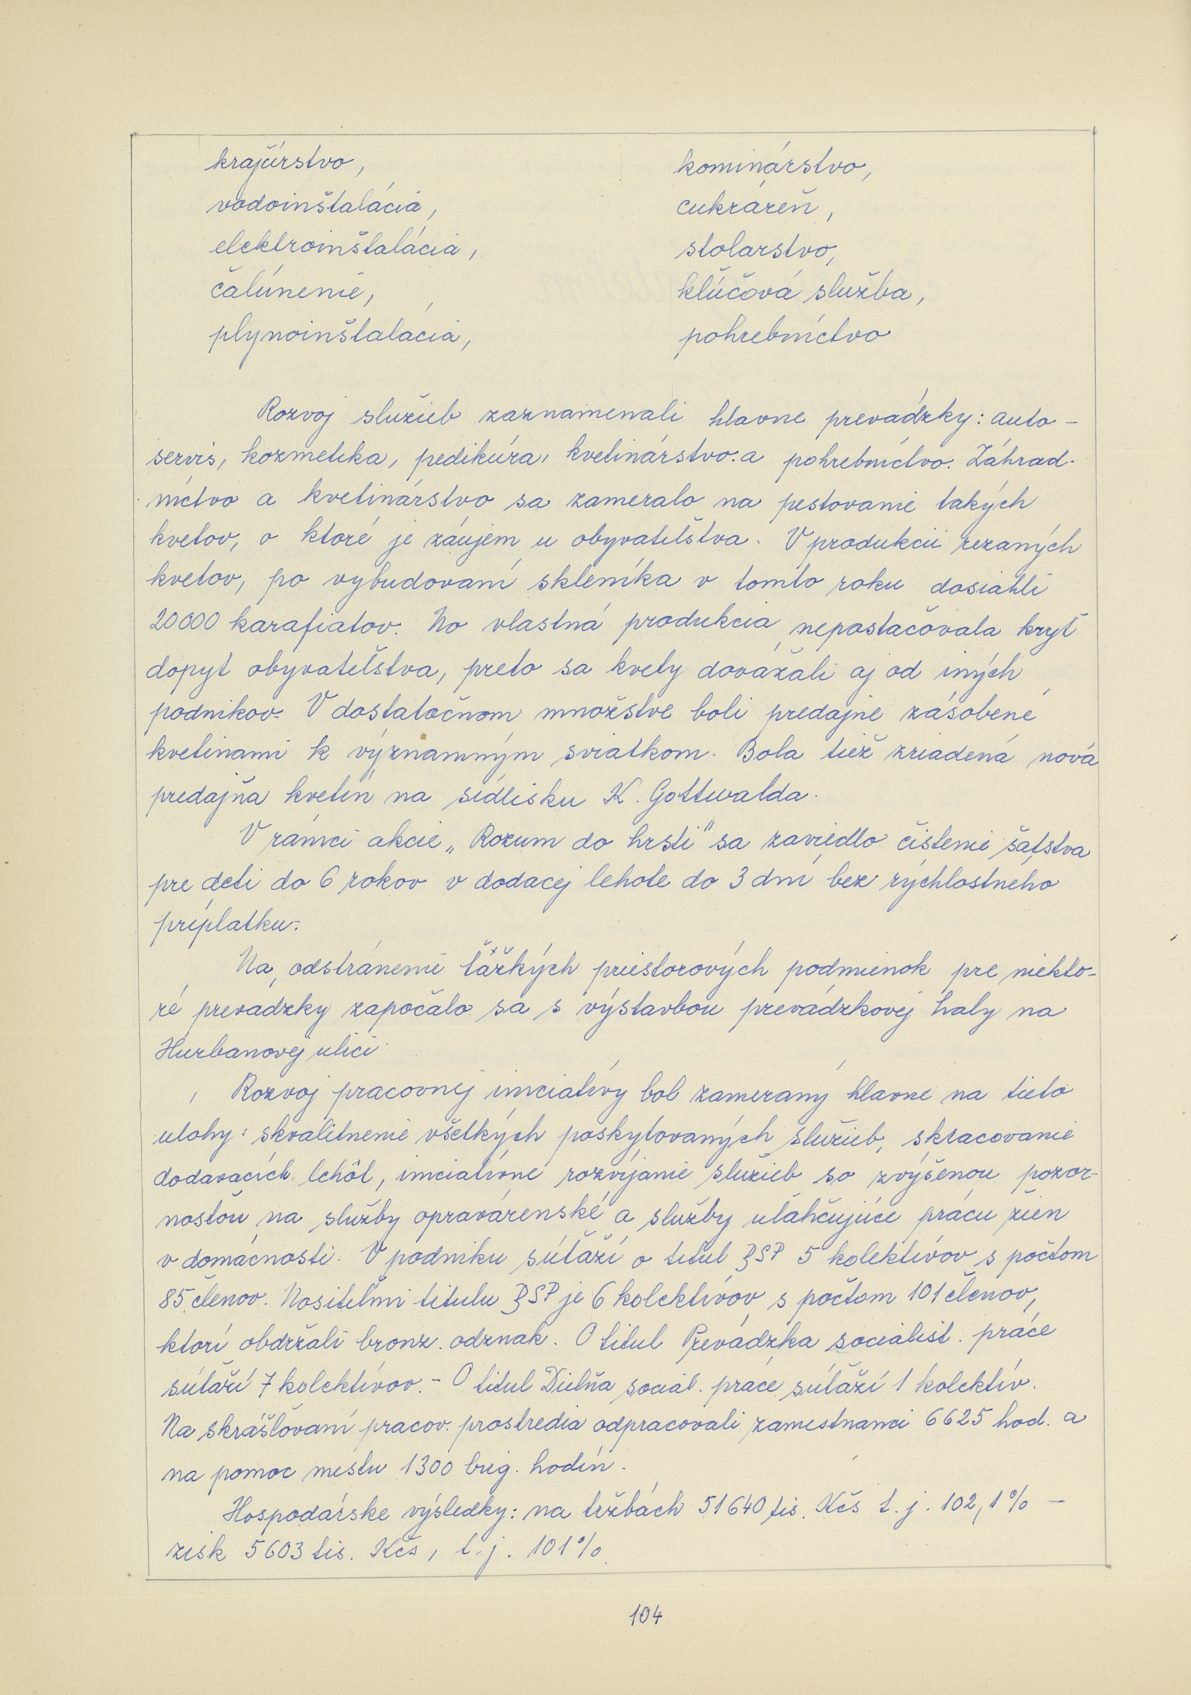 krajčírstvo,
kominárstvo,
vodoinštalácia,
cukráreň,
elektroinštalácia,
stolarstvo,
čalúnenie,
kľúčová služba,
plynoinštalácia,
pohrebníctvo
Rozvoj služieb zaznamenali hlavne prevádzky: auto-
servis, kozmetika, pedikúra, kvetinárstvo a pohrebníctvo. Záhrad-
níctvo a kvetinárstvo sa zameralo na pestovanie takých
kvetov, o ktoré je záujem u obyvateľstva. V produkcii rezaných
kvetov, po vybudovaní skleníka v tomto roku dosiahli
20000 karafiatov. No vlastná produkcia nepostačovala kryť
dopyt obyvateľstva, preto sa kvety dovážali aj od iných
podnikov. V dostatočnom množstve boli predajne zásobené
kvetinami k významným sviatkom. Bola tiež zriadená nová
predajňa kvetín na sídlisku K. Gottwalda.
V rámci akcie „Rozum do hrsti" sa zaviedlo čistenie šatstva
pre deti do 6 rokov v dodacej lehote do 3 dní bez rýchlostného
príplatku.
Na odstránenie ťažkých priestorových podmienok pre niekto-
ré prevádzky započalo sa s výstavbou prevádzkovej haly na
Hurbanovej ulici.
Rozvoj pracovnej iniciatívy bol zameraný hlavne na tieto
úlohy: skvalitnenie všetkých poskytovaných služieb, skracovanie
dodavacích lehôt, iniciatívne rozvíjanie služieb so zvýšenou pozor-
nosťou na služby opravárenské a služby uľahčujúce prácu žien
v domácnosti. V podniku súťaží o titul BSP 5 kolektívov s počtom
85 členov. Nositeľmi titulu BSP je 6 kolektívov s počtom 101 členov,
ktorí obdržali bronz. odznak. O titul Prevádzka socialist. práce
súťaží 7 kolektívov. - O titul Dielňa sociál. práce súťaží 1 kolektív.
Na skrášľovaní pracov. prostredia odpracovali zamestnanci 6625 hod. a
na pomoc mestu 1300 brig. hodín.
Hospodárske výsledky: na tržbách 51640 tis. Kčs t. j. 102,1% -
zisk 5603 tis. Kčs, t. j. 101%.
104